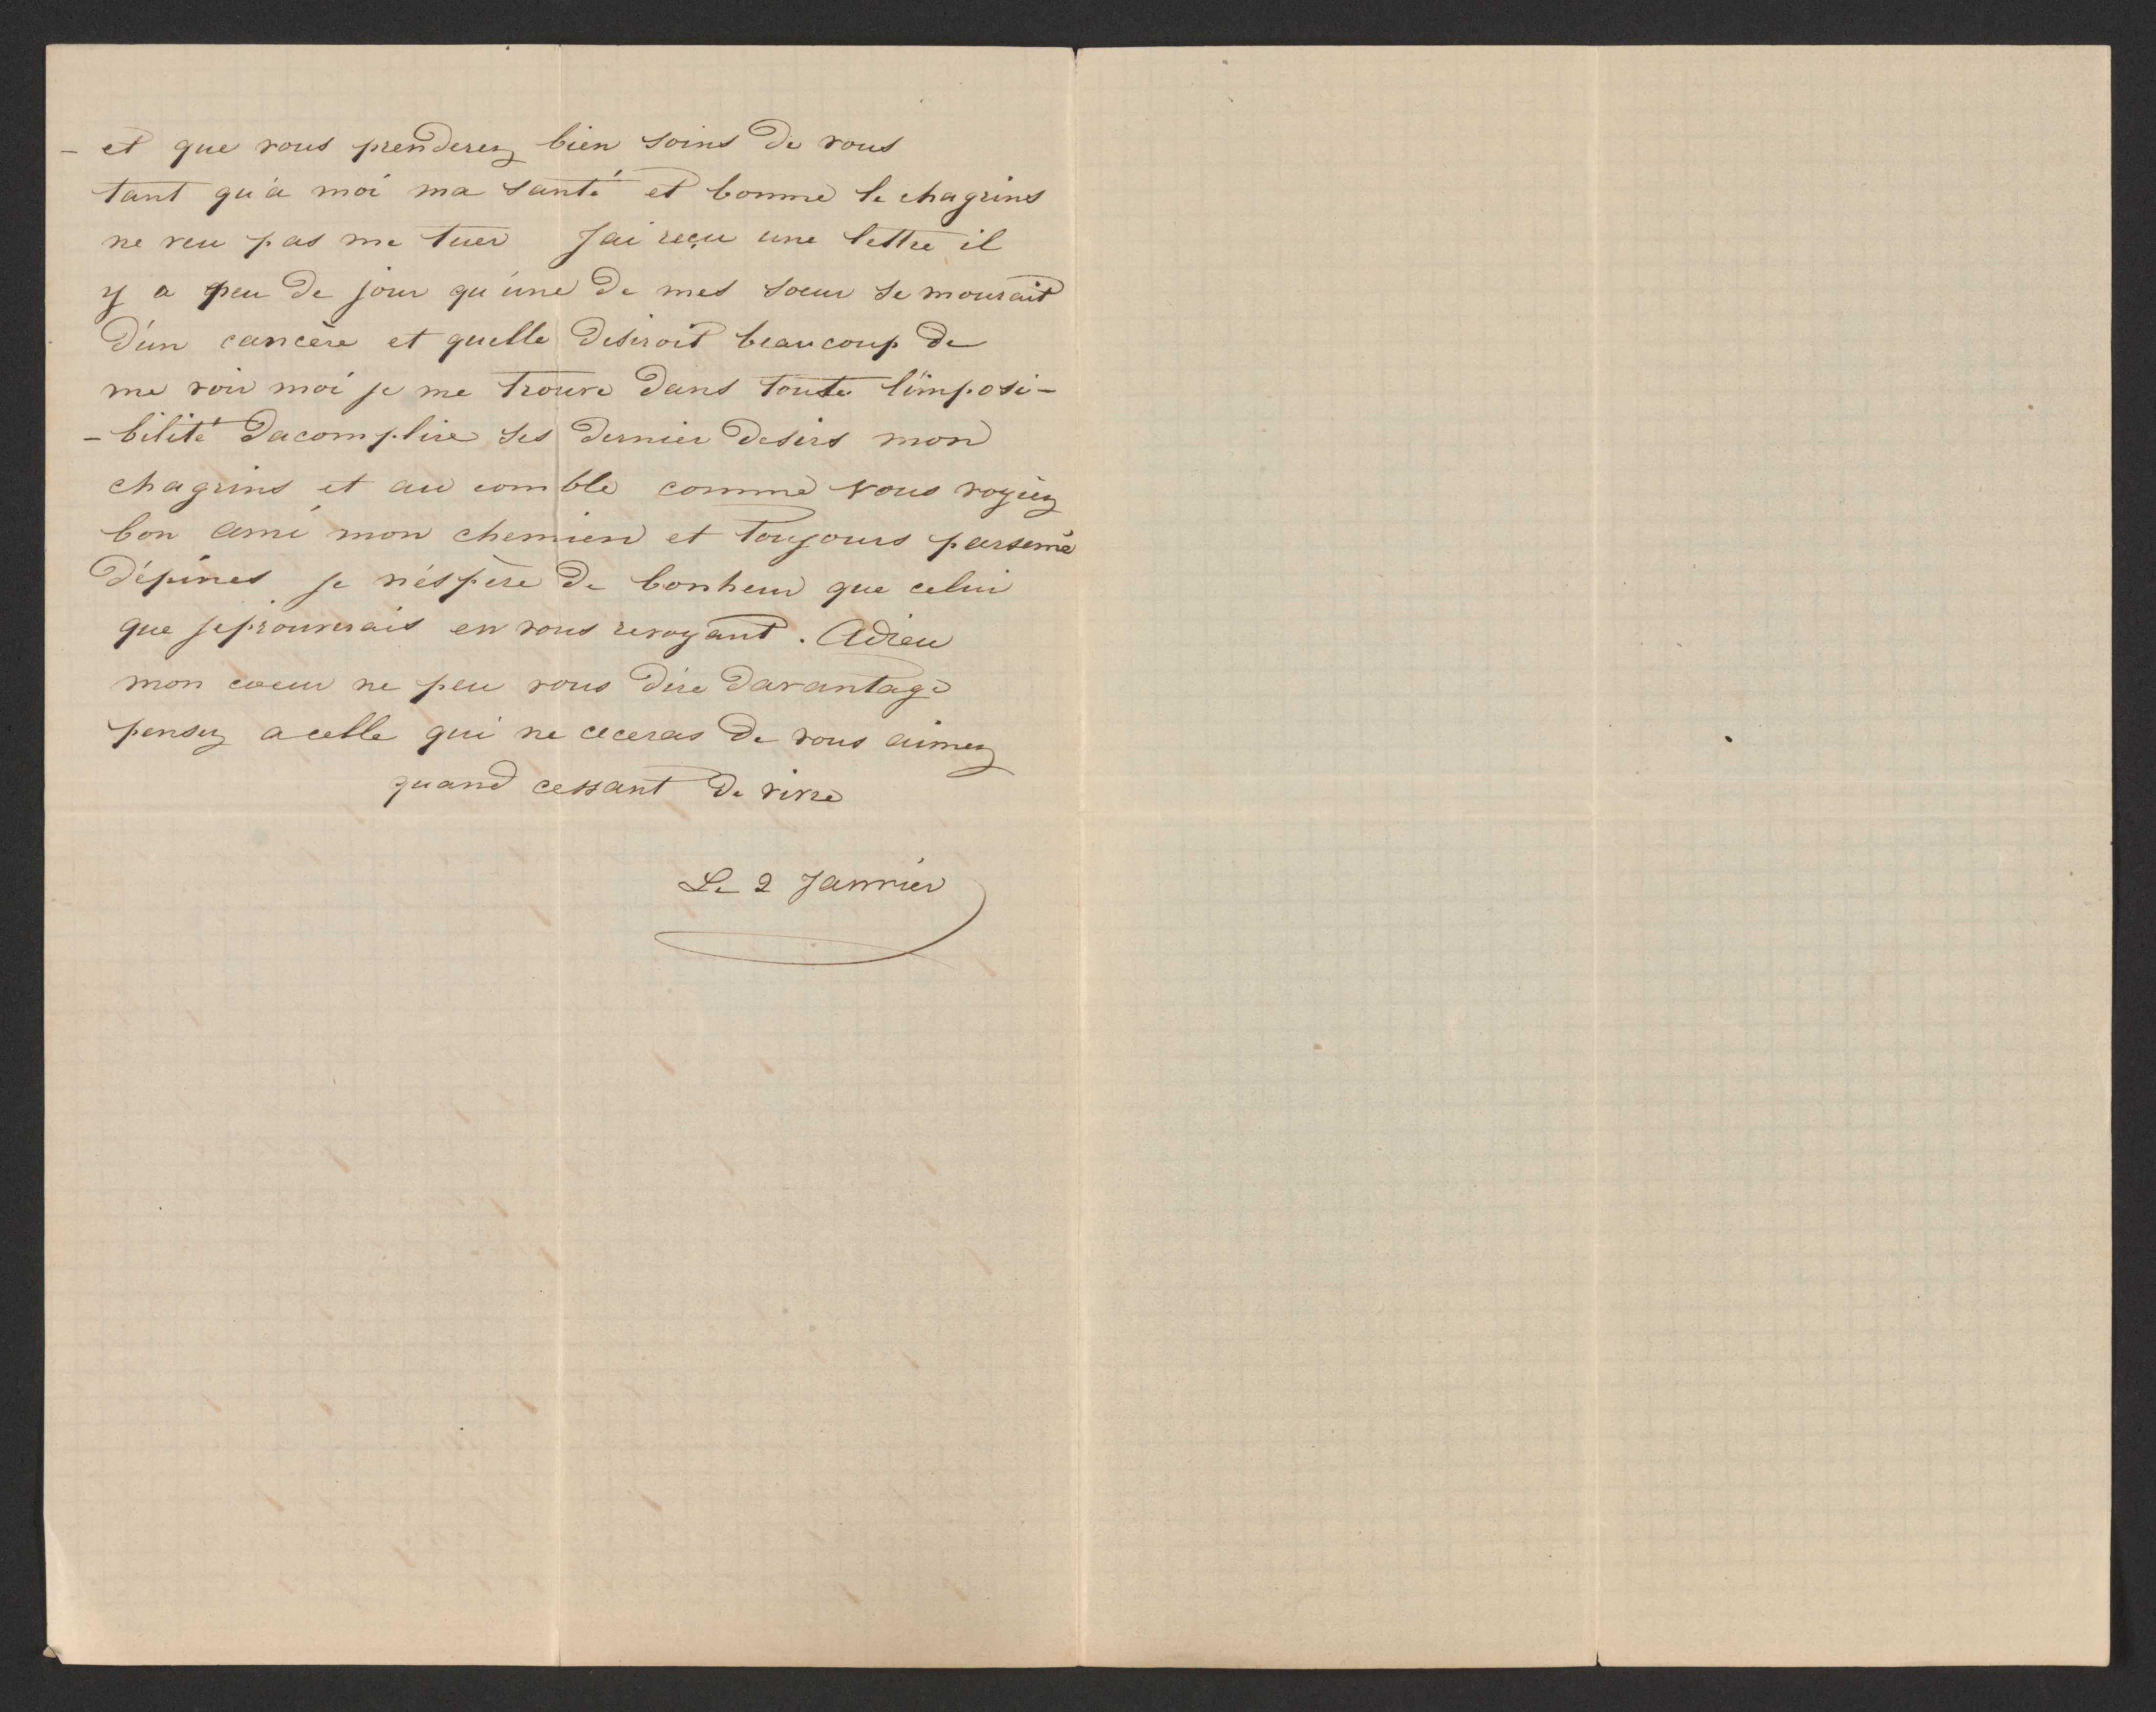 - et que vous prenderez bien soins de vous
tant qu'a moi ma santé et bonne le chagrins
ne veu pas me tuer Jai reçu une lettre il
y a peu de jour qu'une de mes soeur se mourait
d'un cancère et quelle desiroit beaucoup de
me voir moi je me trouve dans toute l'imposi-
- bilité dacomplire ses dernier desirs mon
chagrins et au comble comme vous voyiez
bon ami mon chemien et toujours parsemé
d'épines je n'éspère de bonheur que celui
que jeprouverais en vous revoyant. Adieu
mon coeur ne peu vous dire davantage
pensez a celle qui ne ceceras de vous aimez
quand cessant de vivre
Le 2 Janvier